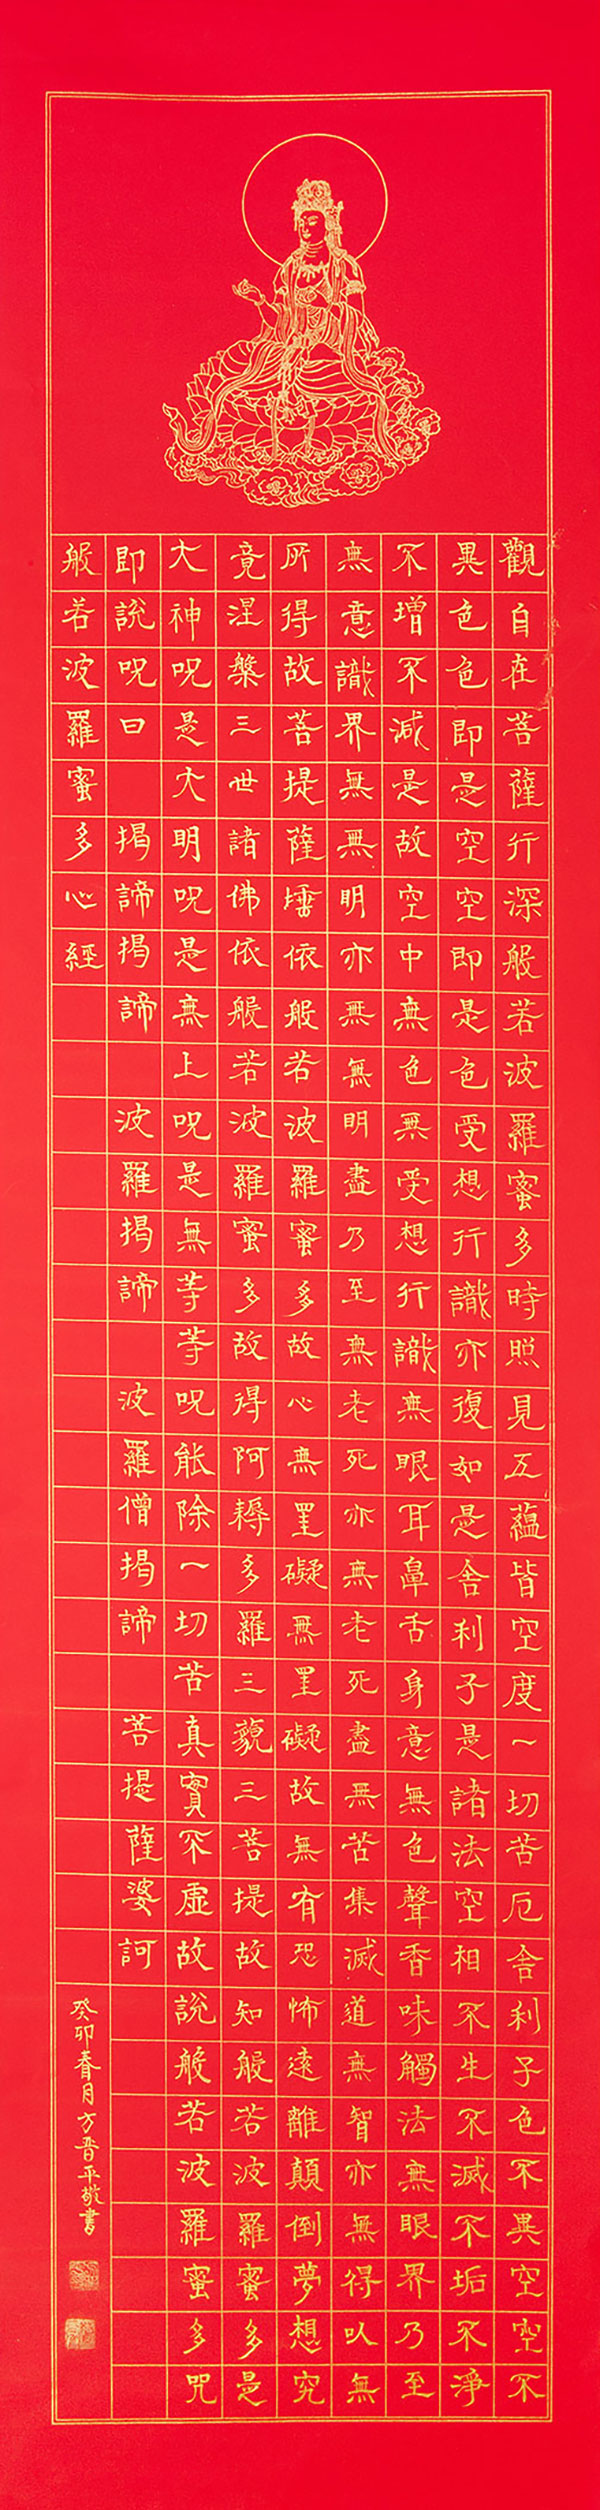 觀自在菩薩行深般若波羅蜜多時照見五蘊皆空度一切苦厄舍利子色不異空空不
異色色即是空空即是色受想行識亦復如是舍利子是諸法空相不生不滅不垢不淨
不增不減是故空中無色無受想行識無眼耳鼻舌身意無色聲香味觸法無眼界乃至
無意識界無無明亦無無明盡乃至無老死亦無老死盡無苦集滅道無智亦無得以無
所得故菩提薩埵依般若波羅蜜多故心無罣礙無罣礙故無有恐怖遠離顛倒夢想究
竟涅槃三世諸佛依般若波羅蜜多故得阿耨多羅三藐三菩提故知般若波羅蜜多是
大神呪是大明呪是無上呪是無等等呪能除一切苦真實不虛故說般若波羅蜜多咒
即說呪曰 揭諦揭諦 波羅揭諦 波羅僧揭諦 菩提薩婆訶
般若波羅蜜多心經
癸卯春月方晉平敬書